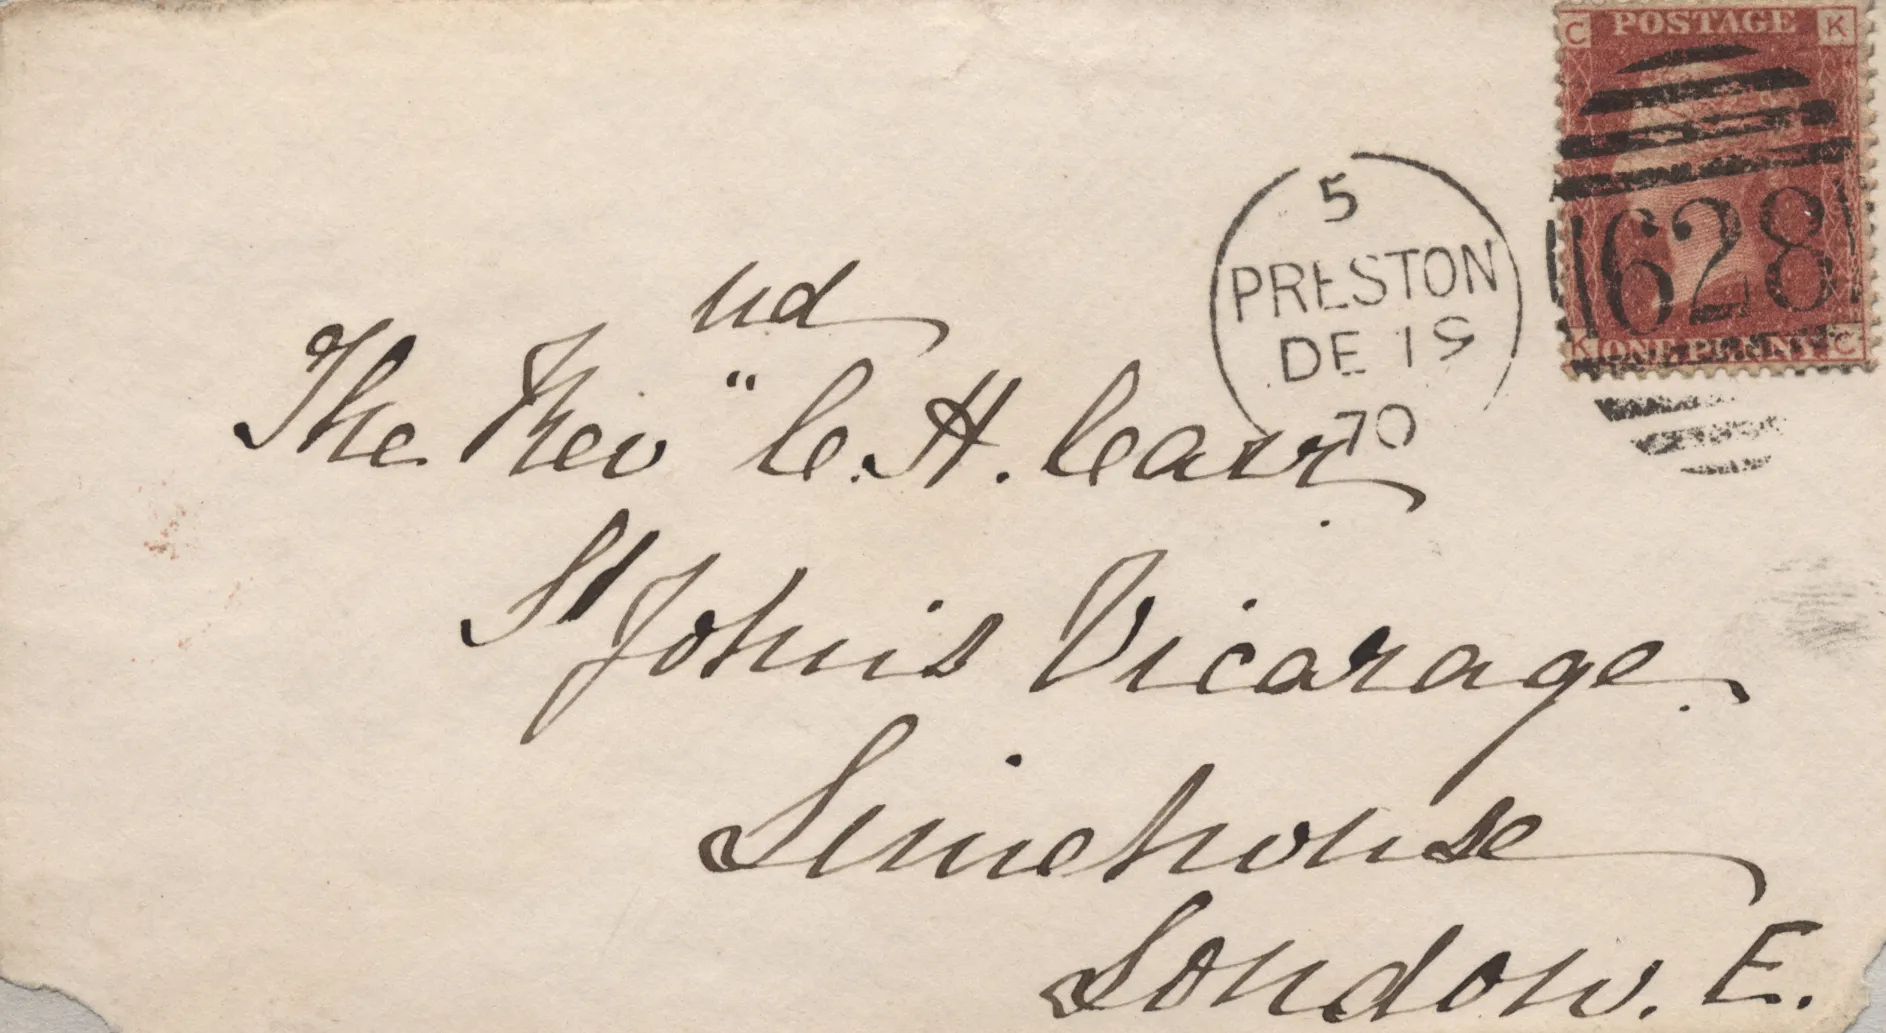 C POSTAGE K
628
K ONE PENNY C
5
PRESTON
DE 19
70
The Revnd C. H. Carr
St John's Vicarage.
Limehouse
London. E.